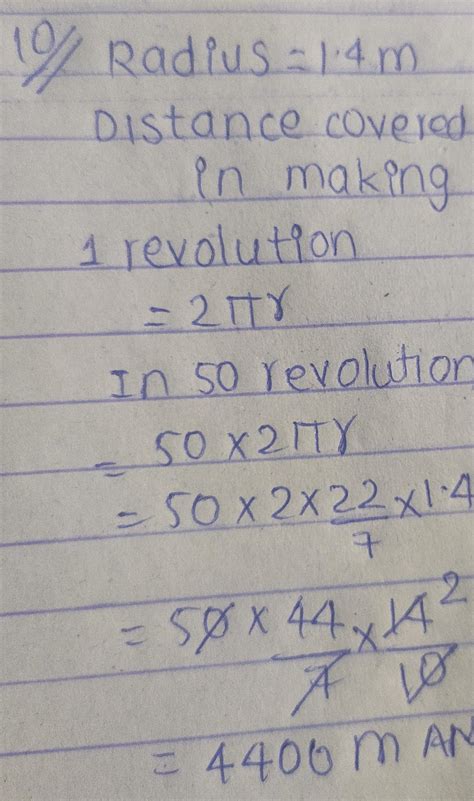 10// Radius = 1.4 m
Distance covered
in making
1 revolution
= 2πr
In 50 revolution
= 50 × 2πr
= 50 × 2 × 22/7 × 1.4
= 50 × 44/7 × 14 2/10
= 4400 m AN